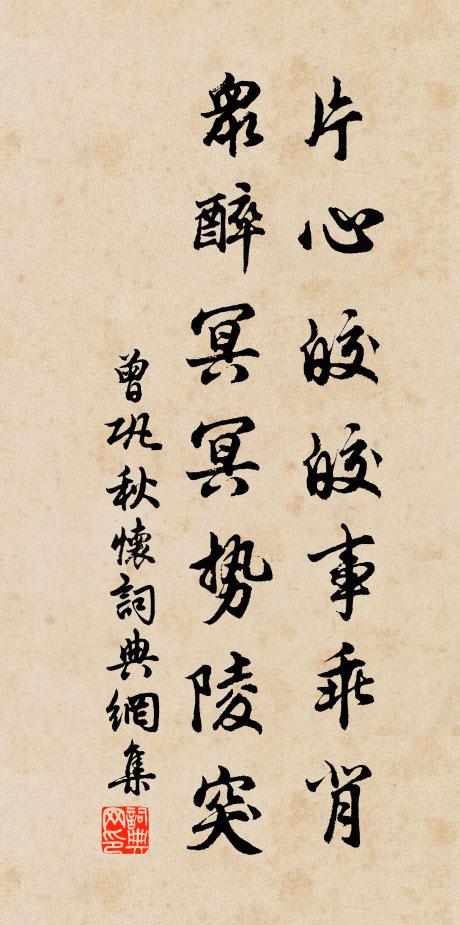 片心皎皎事乖背
眾醉冥冥势陵突
曾巩秋懷詞典網集
詞典网印